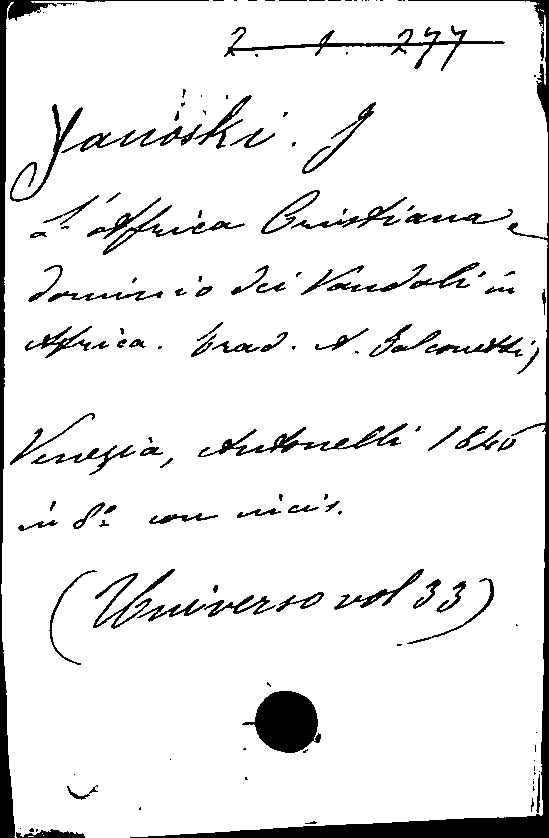 2. 1. 277
Yanoski. J
L'Africa Cristiana e
dominio dei Vandali in
Africa. Trad. A. Falconetti,
Venezia, Antonelli 1846
in 8º con incis.
(Universo vol 33)